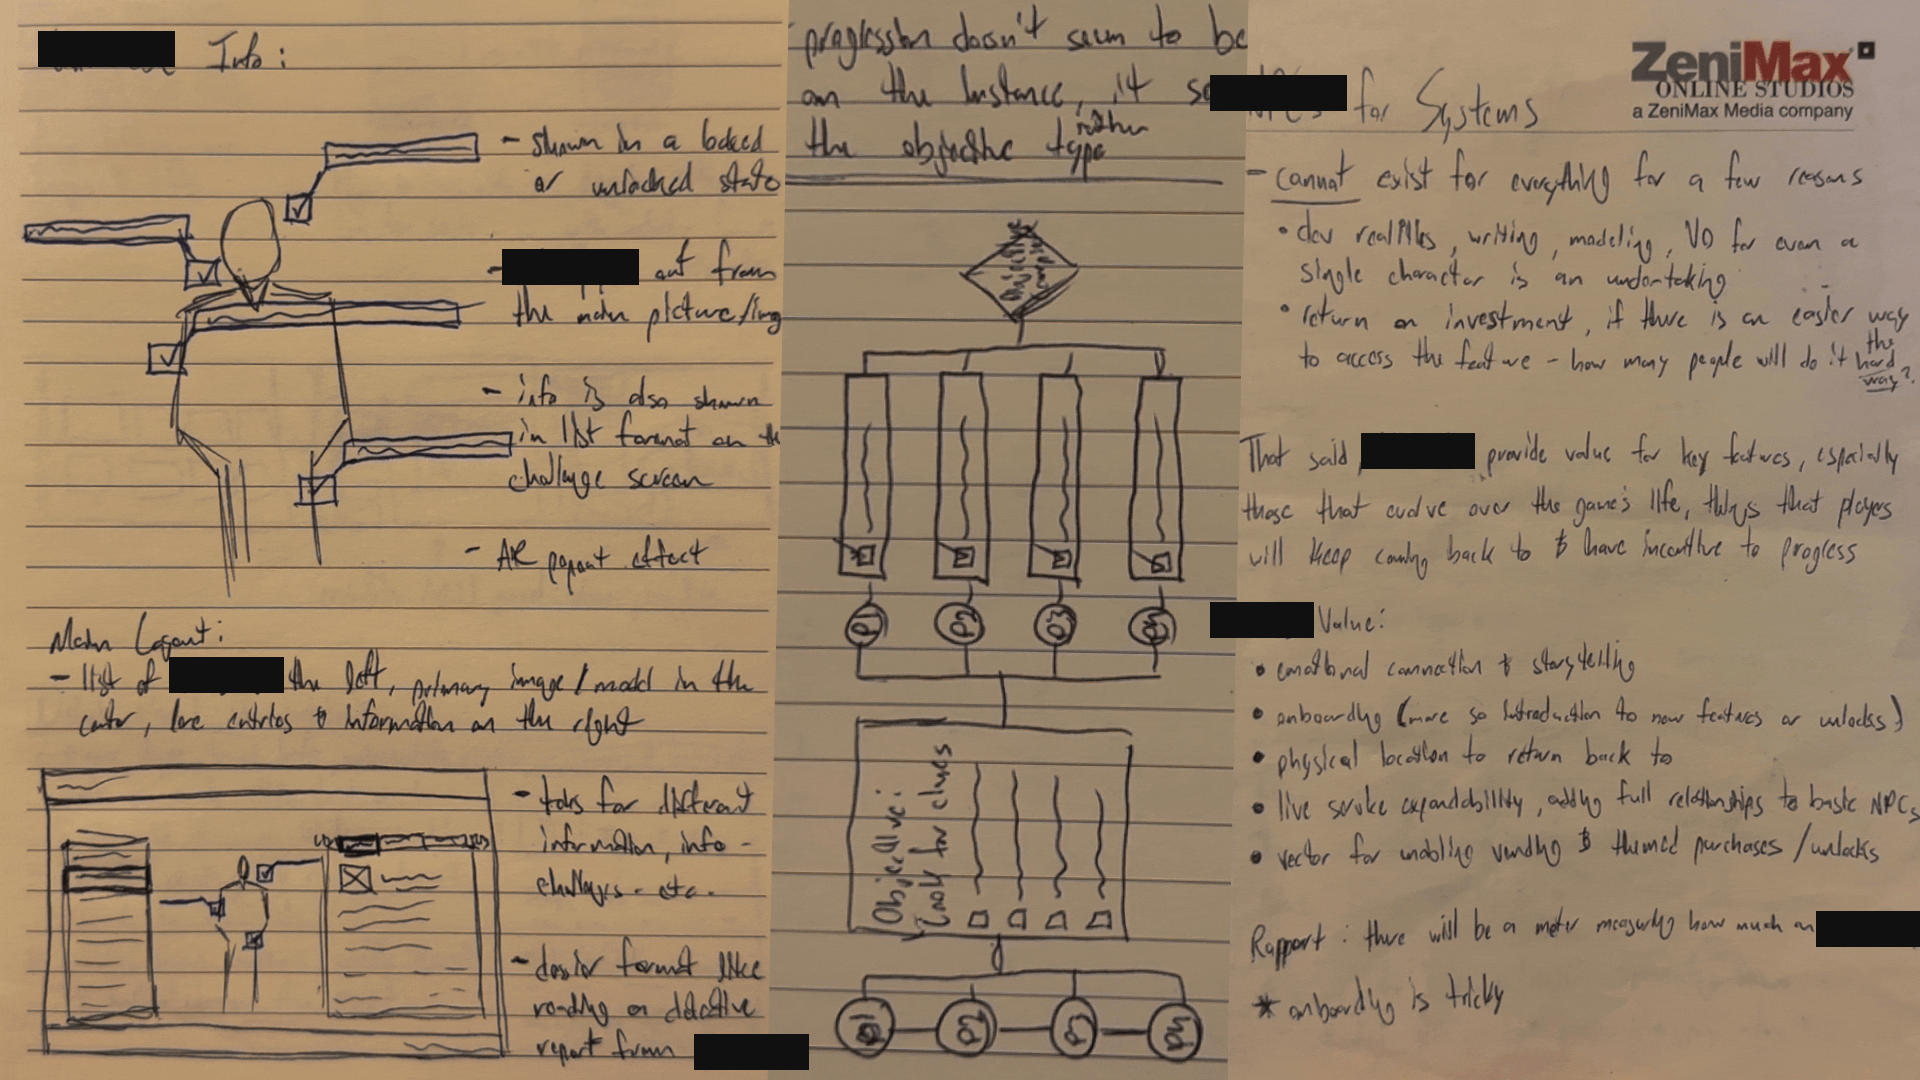 Info:
- shown in a locked
or unlocked state
- out from
the main picture/img
- info is also shown
in list format on the
challenge screen
- AR popout effect
Main Layout:
- list of the left, primary image/model in the
center, lore entries & information on the right
- tabs for different
information, info -
challenges - etc.
- dossier format like
reading a detective
report from
progression doesn't seem to be
on the instance, it
the objective type
rather
P1
P2
P3
P4
Objective:
Look for clues
P1
P2
P3
P4
ZeniMax
ONLINE STUDIOS
a ZeniMax Media company
for Systems
- cannot exist for everything for a few reasons
• dev realities, writing, modeling, VO for even a
single character is an undertaking
• return on investment, if there is an easier way
to access the feature - how many people will do it the hard way?
That said, provide value for key features, especially
those that evolve over the game's life, things that players
will keep coming back to & have incentive to progress
Value:
• emotional connection & storytelling
• onboarding (more so introduction to new features or unlocks)
• physical location to return back to
• live service expandability, adding full relationships to basic NPCs
• vector for enabling vending & themed purchases/unlocks
Rapport: there will be a meter measuring how much an
* onboarding is tricky